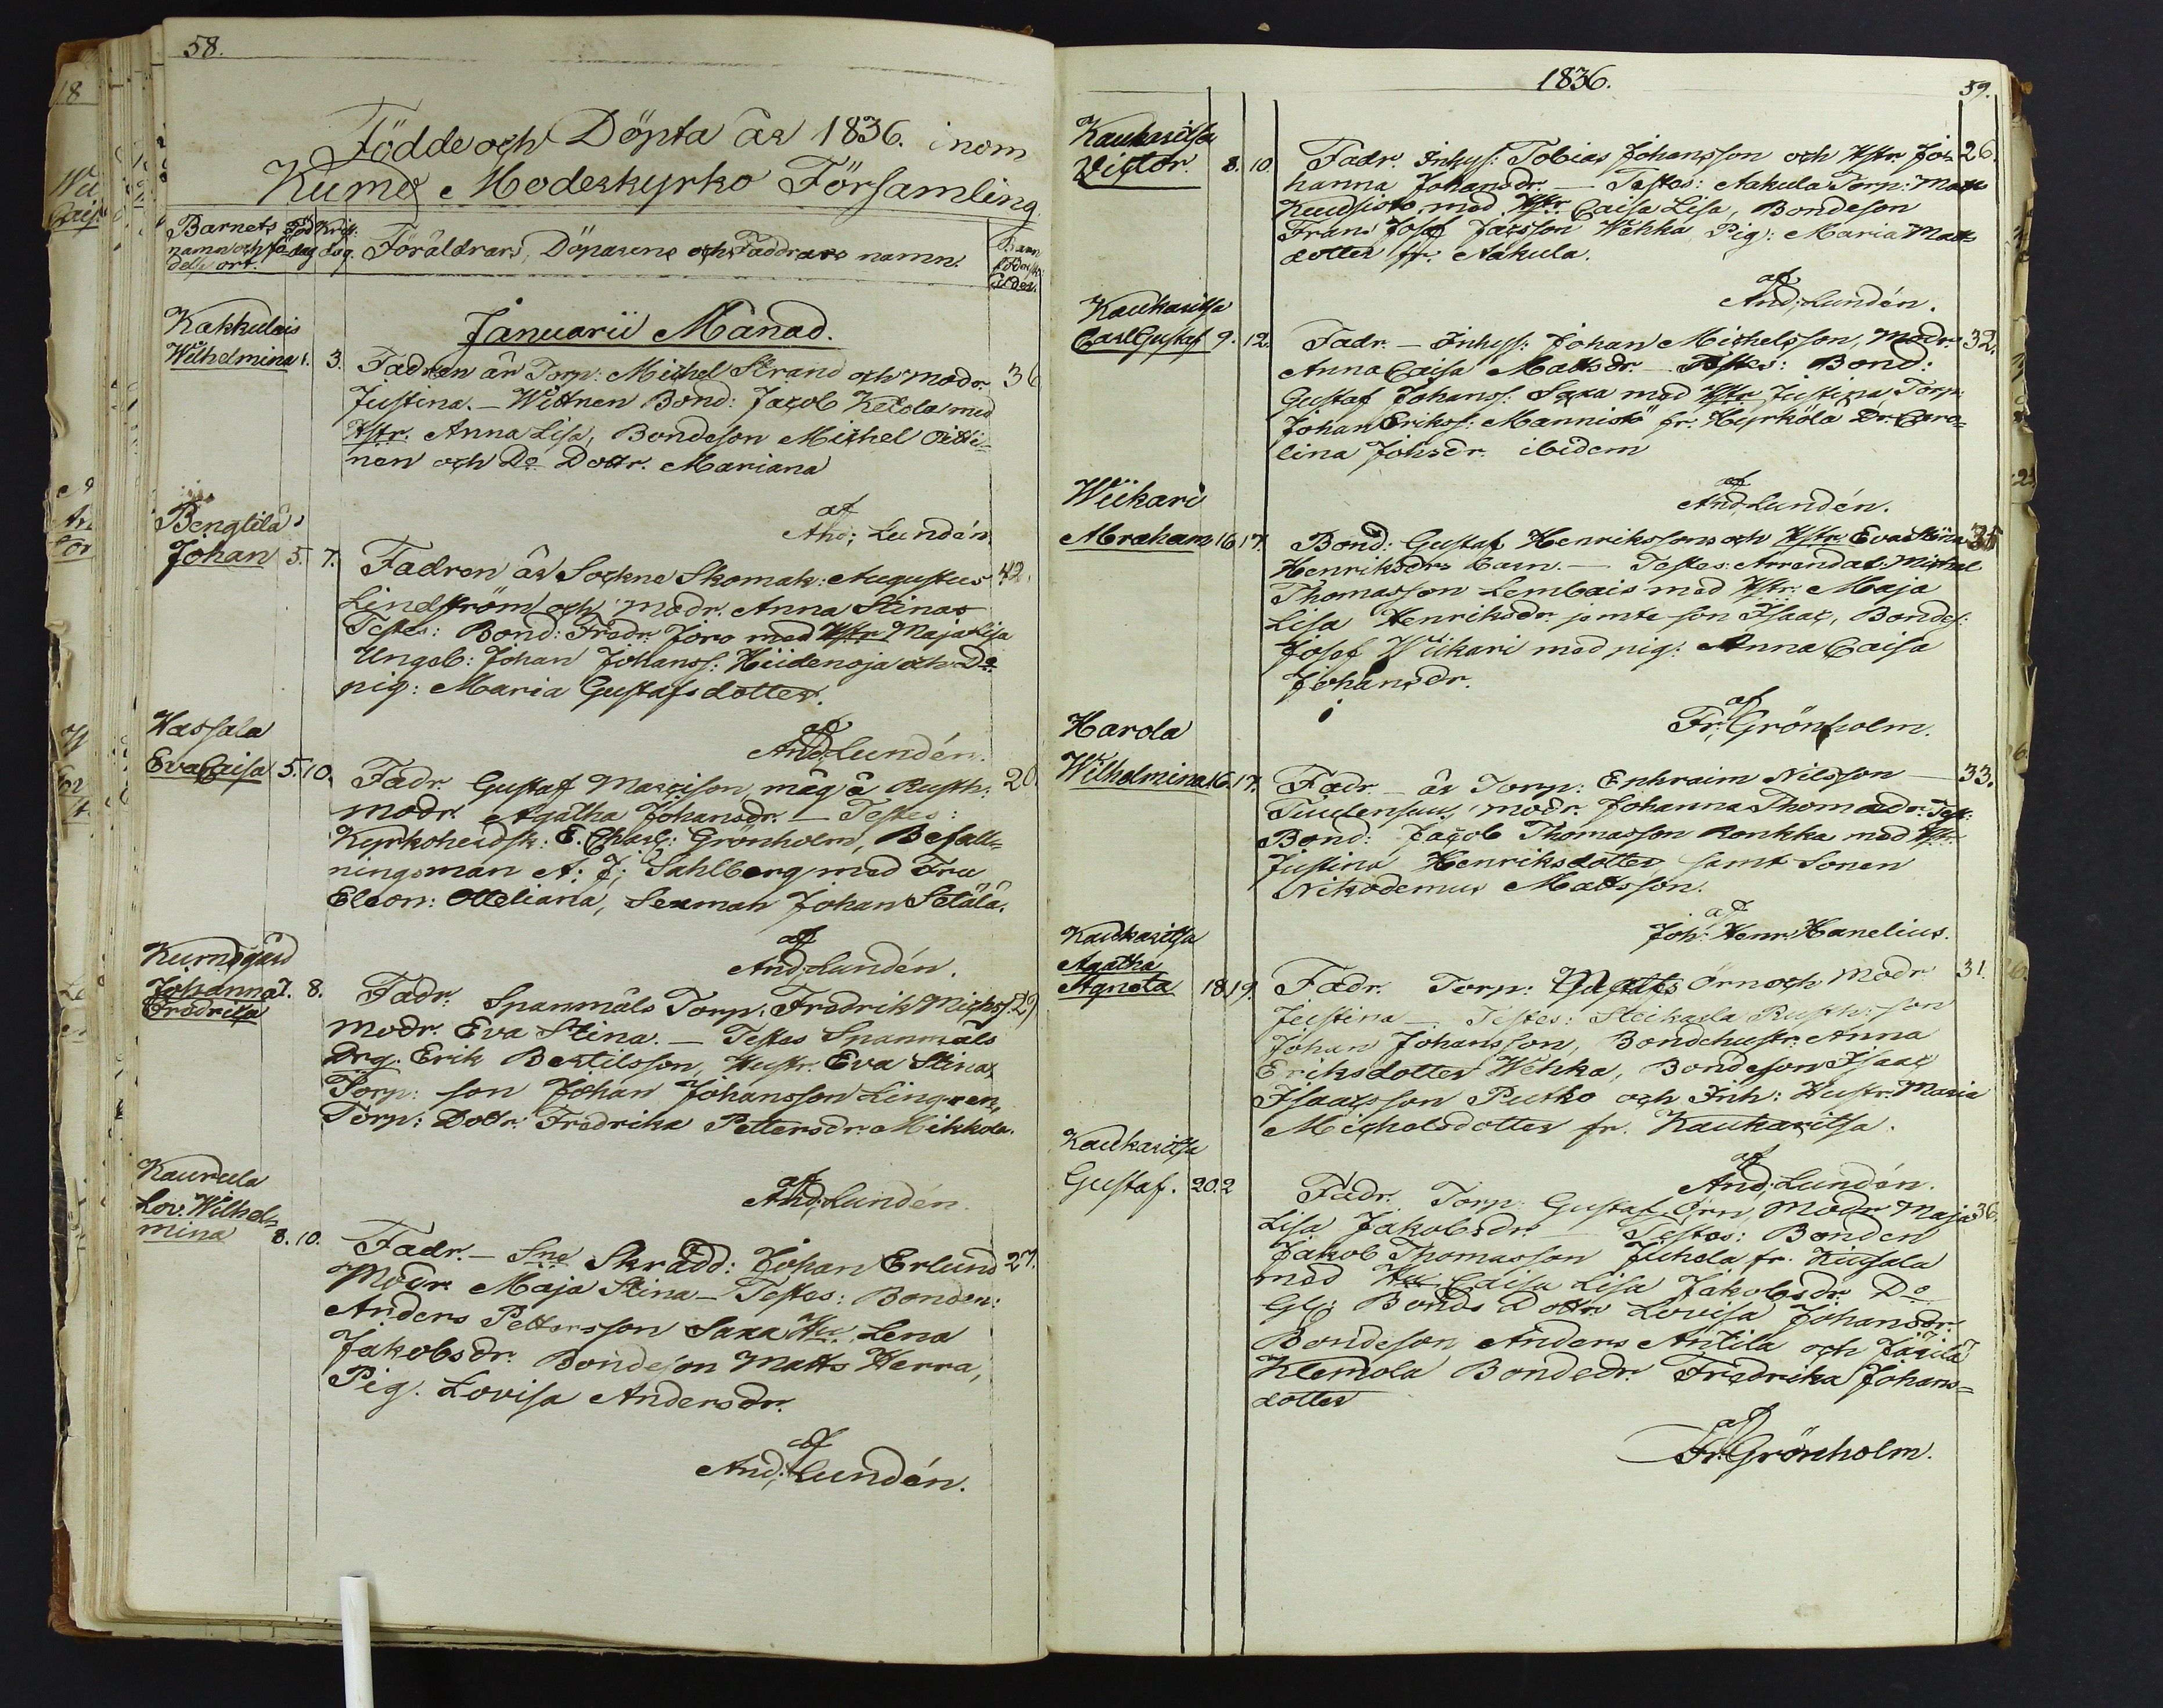 58.
Födde och Döpta år 1836. inom
Kumo Moderkyrko Församling
Barnets namn och födelse ort. Född dag Krist. dag. Föräldrars, Döparens och Faddrars namn. Barnaföderskans ålder.
Januarii Månad.
Kakkulais
Wilhelmina 1. 3. Fadren är Torp: Michel Strand och modr. 36
Justina. – Wittnen Bond: Jacob Kekola med
Hstr. Anna Lisa, Bondeson Michel Pitti=
nen och Do Dottr. Mariana
af
And; Lundén.
Bengtilä
Johan 5. 7. Fadren är Sockne Skomak: Augustus 42.
Lindström och modr. Anna Stinas
Testes: Bond: Fredr. Joro med Hstr Maja Lisa
Ungab: Johan Johanss: Hiidenoja och Do
pig: Maria Gustafsdotter.
af
And; Lundén.
Hassala
Eva Caisa 5. 10. Fadr. Gustaf Marcison, måg å Rusth: 20.
modr. Agatha Johansdr. – Testes:
Kyrkoherdsk: E. Charl: Grönholm, Befall=
ningsman A: J; Sahlberg med Fru
Eleon: Otteliana, Sexman Johan Setälä.
af
And; Lundén.
Kumogård
Johanna
Fredrika 7. 8. Fadr. Spanmåls Torp: Fredrik Michss: 29
modr. Eva Stina. – Testes Spanmåls
Drg. Erik Bertilsson, Hustr. Eva Stina,
Torp: son Johan Johansson Lingren,
Torp: Dottr. Fredrika Pettersdr. Mikkola.
af
And; Lundén.
Kaurula
Lov: Wilhel=
mina 8. 10. Fadr. – Sne Skrädd: Johan Erlund 27.
Modr. Maja Stina – Testes: Bonden:
Anders Pettersson Saxa Hu Lena
Jakobsdr. Bondeson Matts Herra,
Pig. Lovisa Andersdr.
af
And; Lundén.
1836.
59.
Kaukaritsa
Victor. 8. 10. Fadr. Inhys: Tobias Johansson och Hstr Jo= 26.
hanna Johansdr. – Testes: Aakula Torp: Matts
Kuusisto med Hstr Caisa Lisa, Bondeson
Frans Josef Jacsson Wehka, Pig: Maria Matts
dotter fr. Aakula.
af
And; Lundén.
Kaukaritsa
Carl Gustaf 9. 12. Fadr. – Inhys: Johan Michelsson, modr. 32.
Anna Caisa Mattsdr. – Testes: Bond:
Gustaf Johans: Saxa med Hstr Justina Torp:
Johan Erikss: Mannistö fr. Kyrkölä Dr. Caro=
lina Johsdr. ibidem
af
And; Lundén.
Wiikari
Abraham 16. 17. Bond: Gustaf Henrikssons och Hstr Eva Stina 35
Henriksdrs barn. – Testes: Arrendat: Michel
Thomasson Lembais med Hstr: Maja
Lisa Henriksdr. jemte son Isaac, Bondes:
Josef Wiikari med pig: Anna Caisa
Johansdr.
af
Fr. Grönholm.
Harola
Wilhelmina 16. 17. Fadr – är Torp: Ephraim Nilsson – 33.
Tuulensuu, modr. Johanna Thomadr. Test:
Bond: Jacob Thomasson Ronkka med Hstr
Justina Henriksdotter samt Sonen
Nikodemus Mattsson.
af
Joh: Henr: Hanelius.
Kaukaritsa
Agatha
Agneta 18. 19. Fadr. Torp: Matts Örn och Modr 31.
Justina –. Testes: Sleikarla Rusth: son
Johan Johansson, Bondehustr. Anna
Eriksdotter Wehka, Bondeson Isaac
Isaacsson Putko och Inh: Hustr. Maria
Michelsdotter fr. Kaukaritsa.
af
And; Lundén.
Kaukaritsa
Gustaf. 20. 2 Fadr. Torp: Gustaf Örn, Modr. Maja 36.
Lisa Jakobsdr. – Testes: Bonden
Jakob Thomasson Juhola fr. Kiusala
med Hu Caisa Lisa Jakobsdr. Do
Gl: Bonds Dottr Lovisa Johansdr.
Bondeson Anders Antila och Järilä
Klemola Bondedr. Fredrika Johans=
dotter
af
Fr. Grönholm.